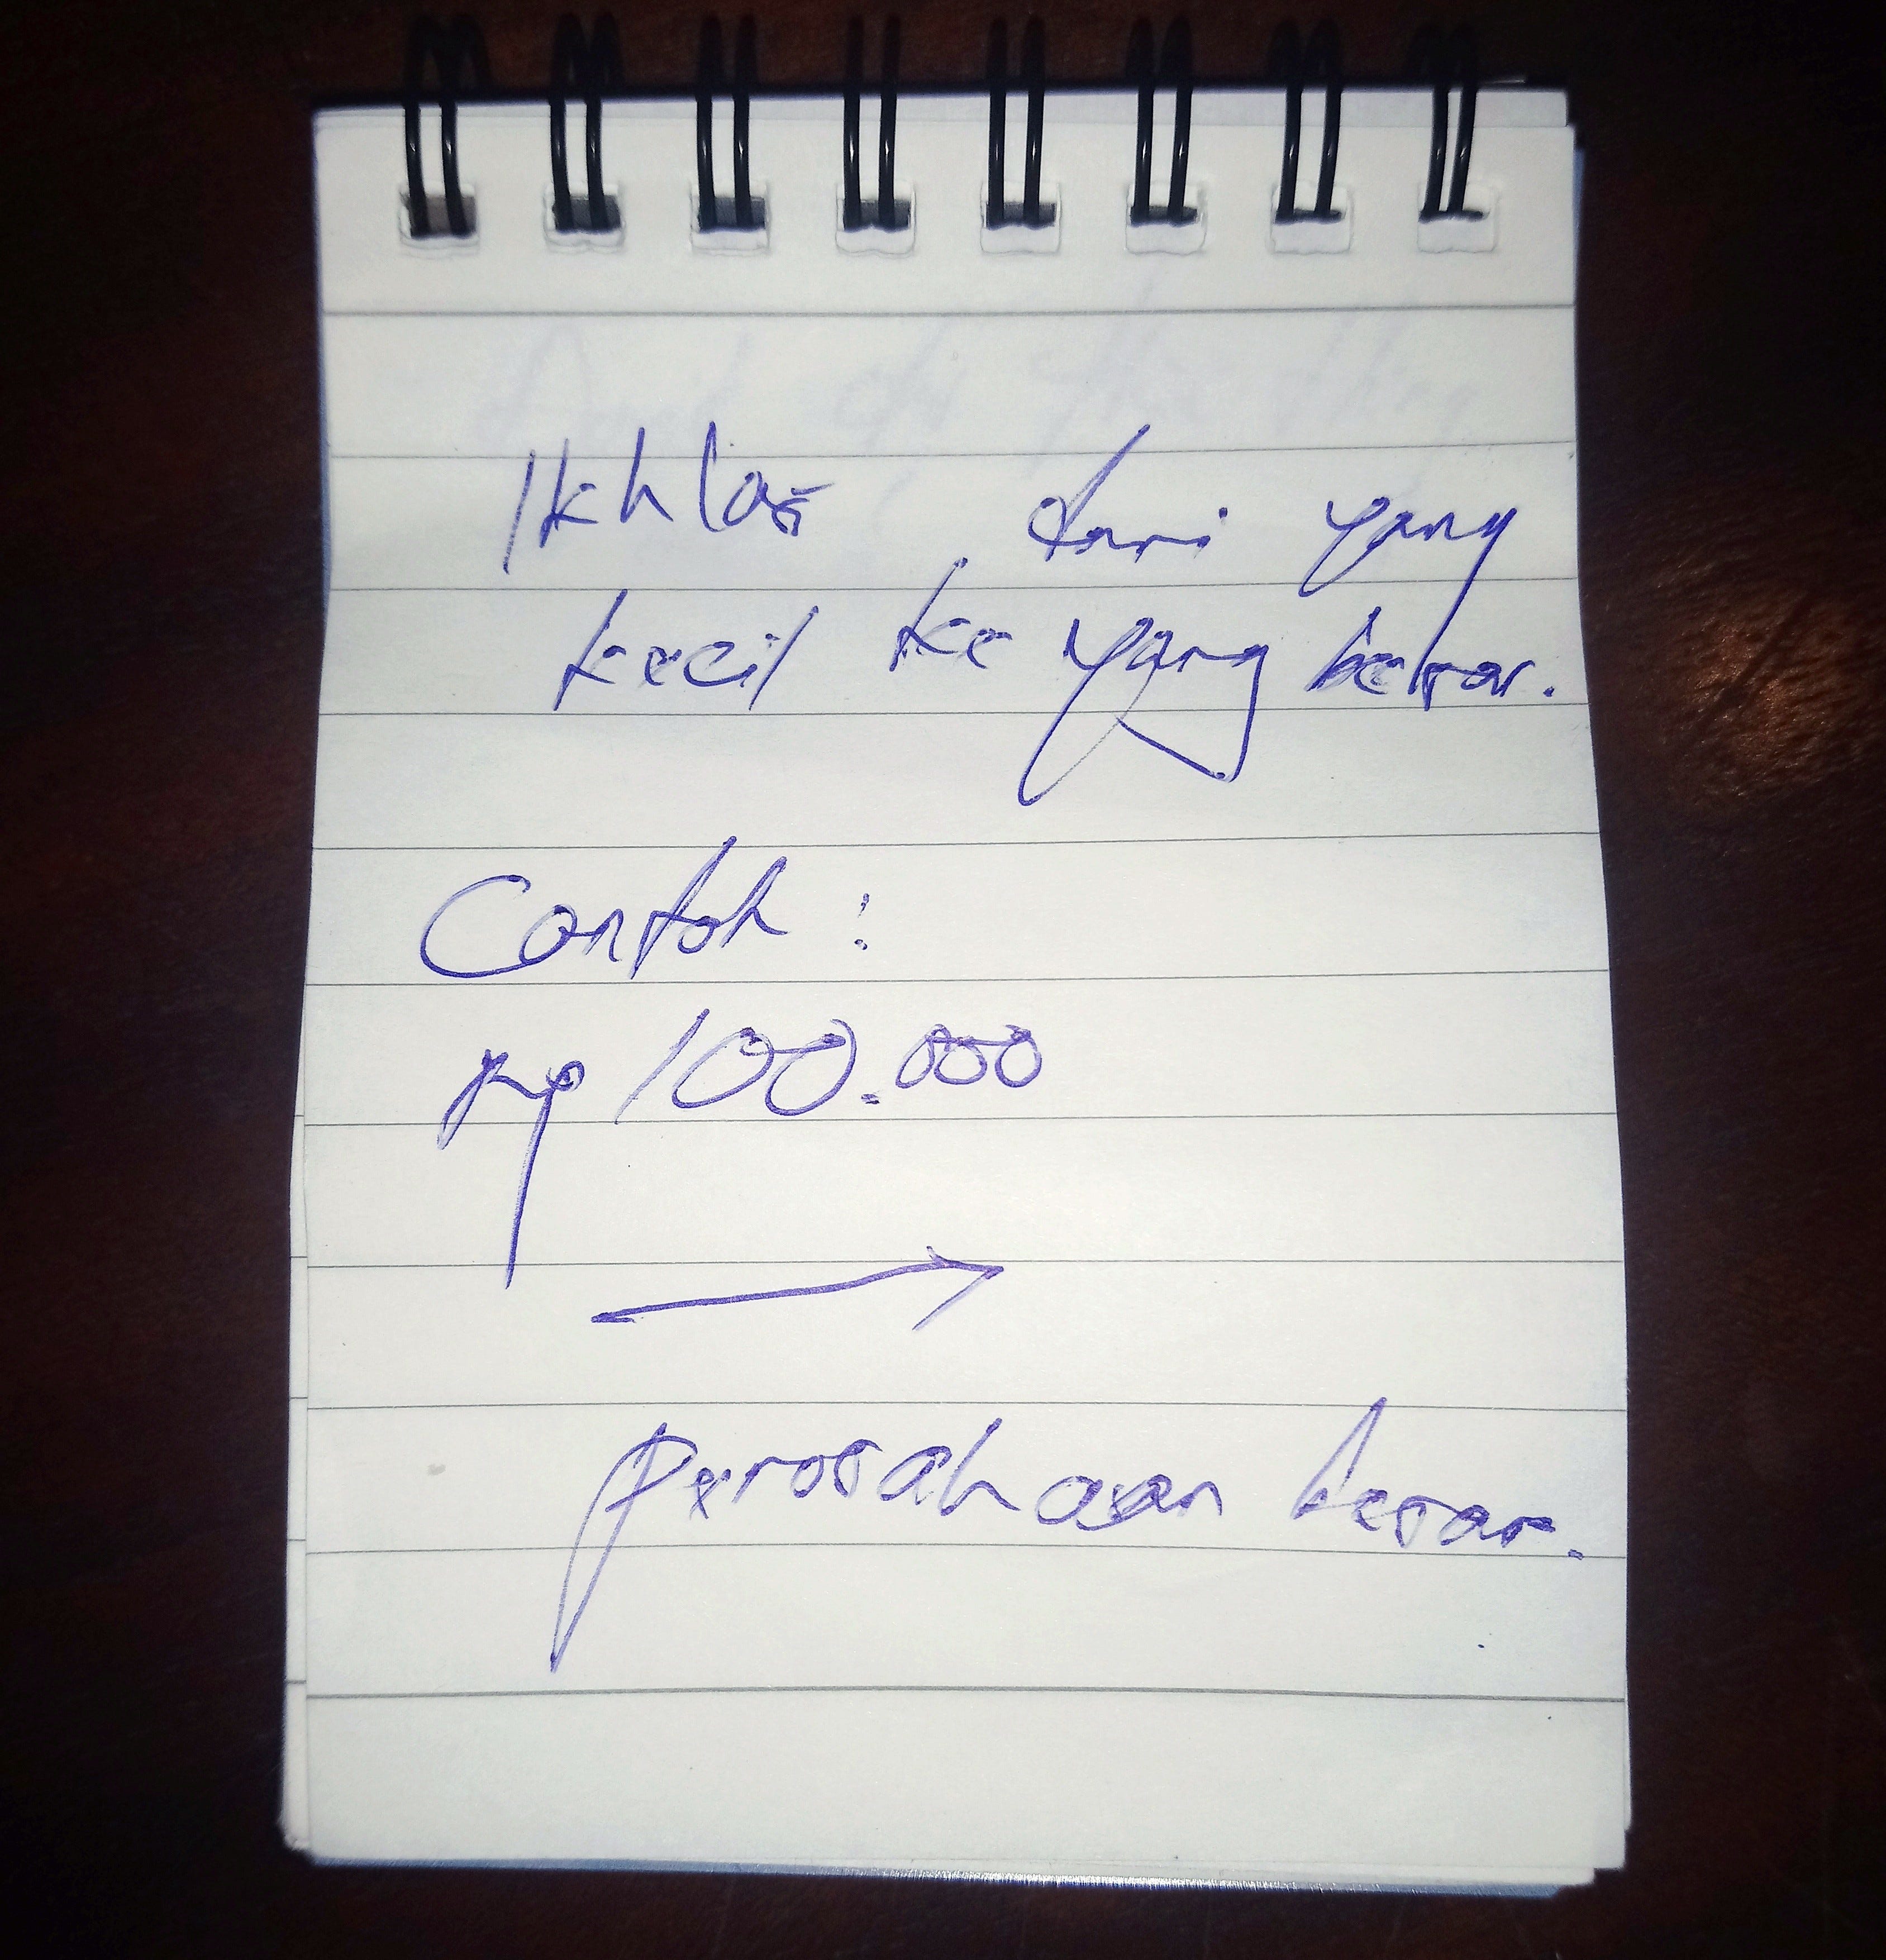 Ikhlas dari yang
kecil ke yang besar.
Contoh :
Rp 100.000
→
perosahaan besar.